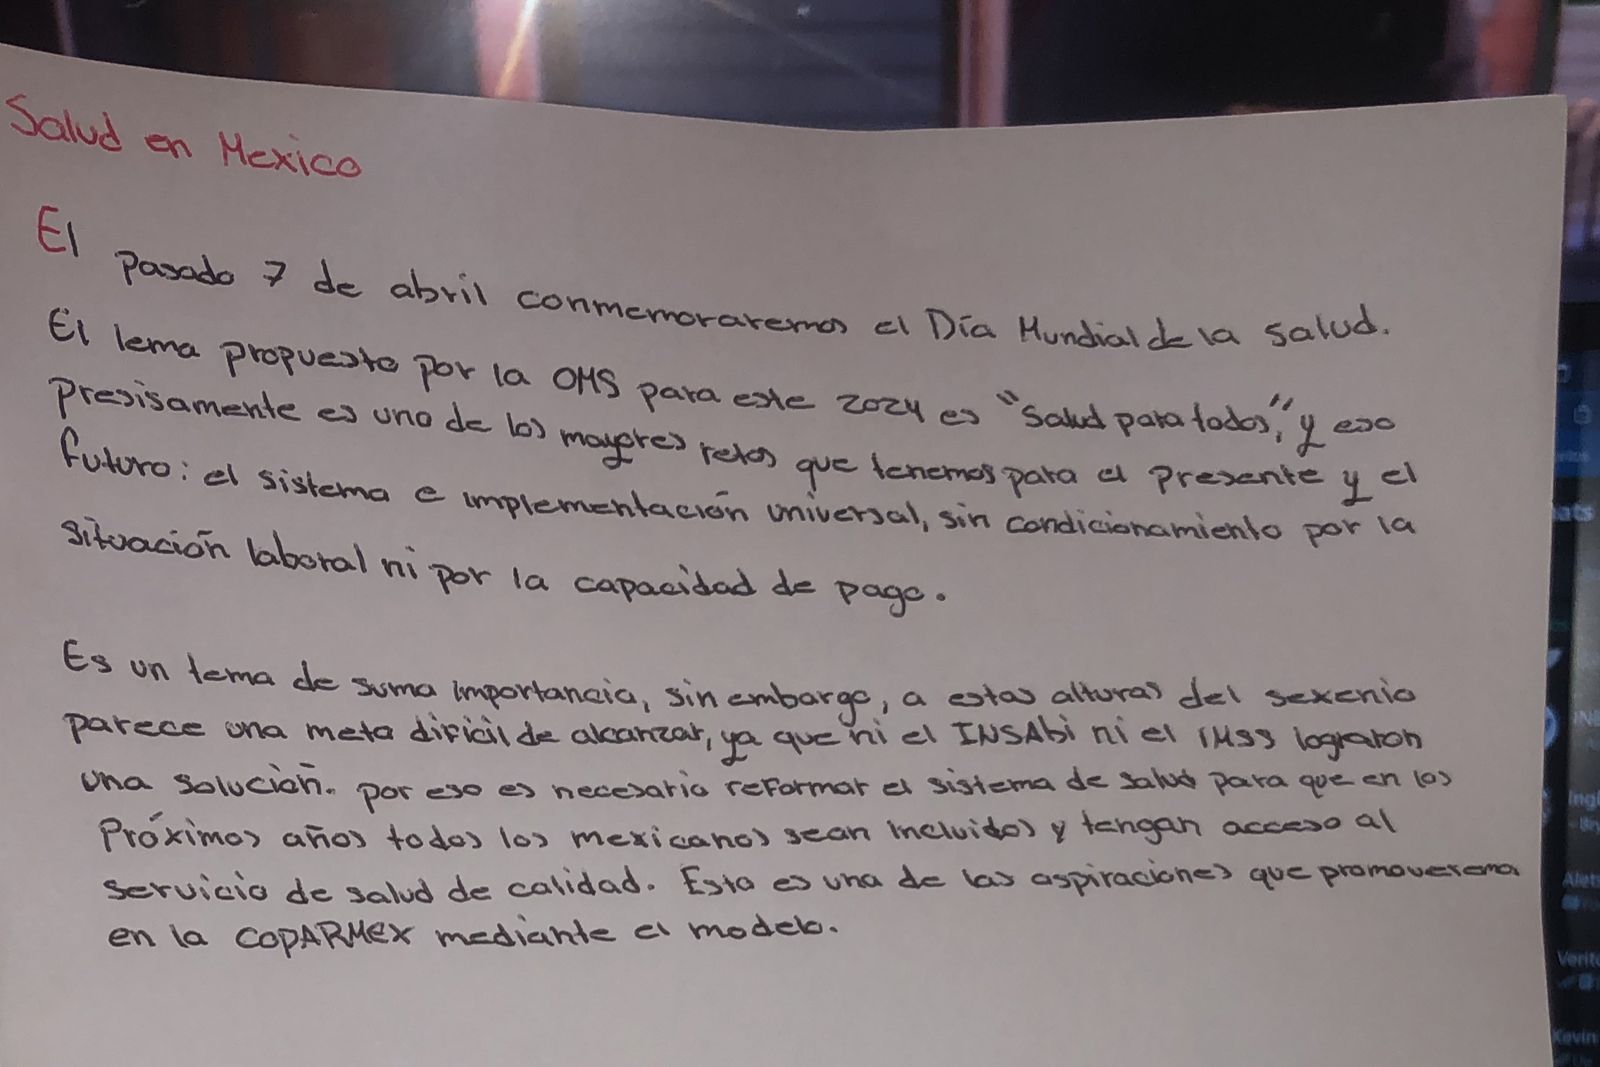 Salud en Mexico
El pasado 7 de abril conmemoraremos el Día Mundial de la Salud.
El lema propuesto por la OMS para este 2024 es "Salud para todos," y eso
presisamente es uno de los mayores retos que tenemos para el presente y el
futuro: el sistema e implementación universal, sin condicionamiento por la
situación laboral ni por la capacidad de pago.
Es un tema de suma importancia, sin embargo, a estas alturas del sexenio
parece una meta dificil de alcanzar, ya que ni el INSAbi ni el IMSS lograron
una solución. por eso es necesario reformar el sistema de salud para que en los
Próximos años todos los mexicanos sean incluidos y tengan acceso al
servicio de salud de calidad. Esta es una de las aspiraciones que promoverema
en la COPARMEX mediante el modelo.
ats
Verit
Kevin